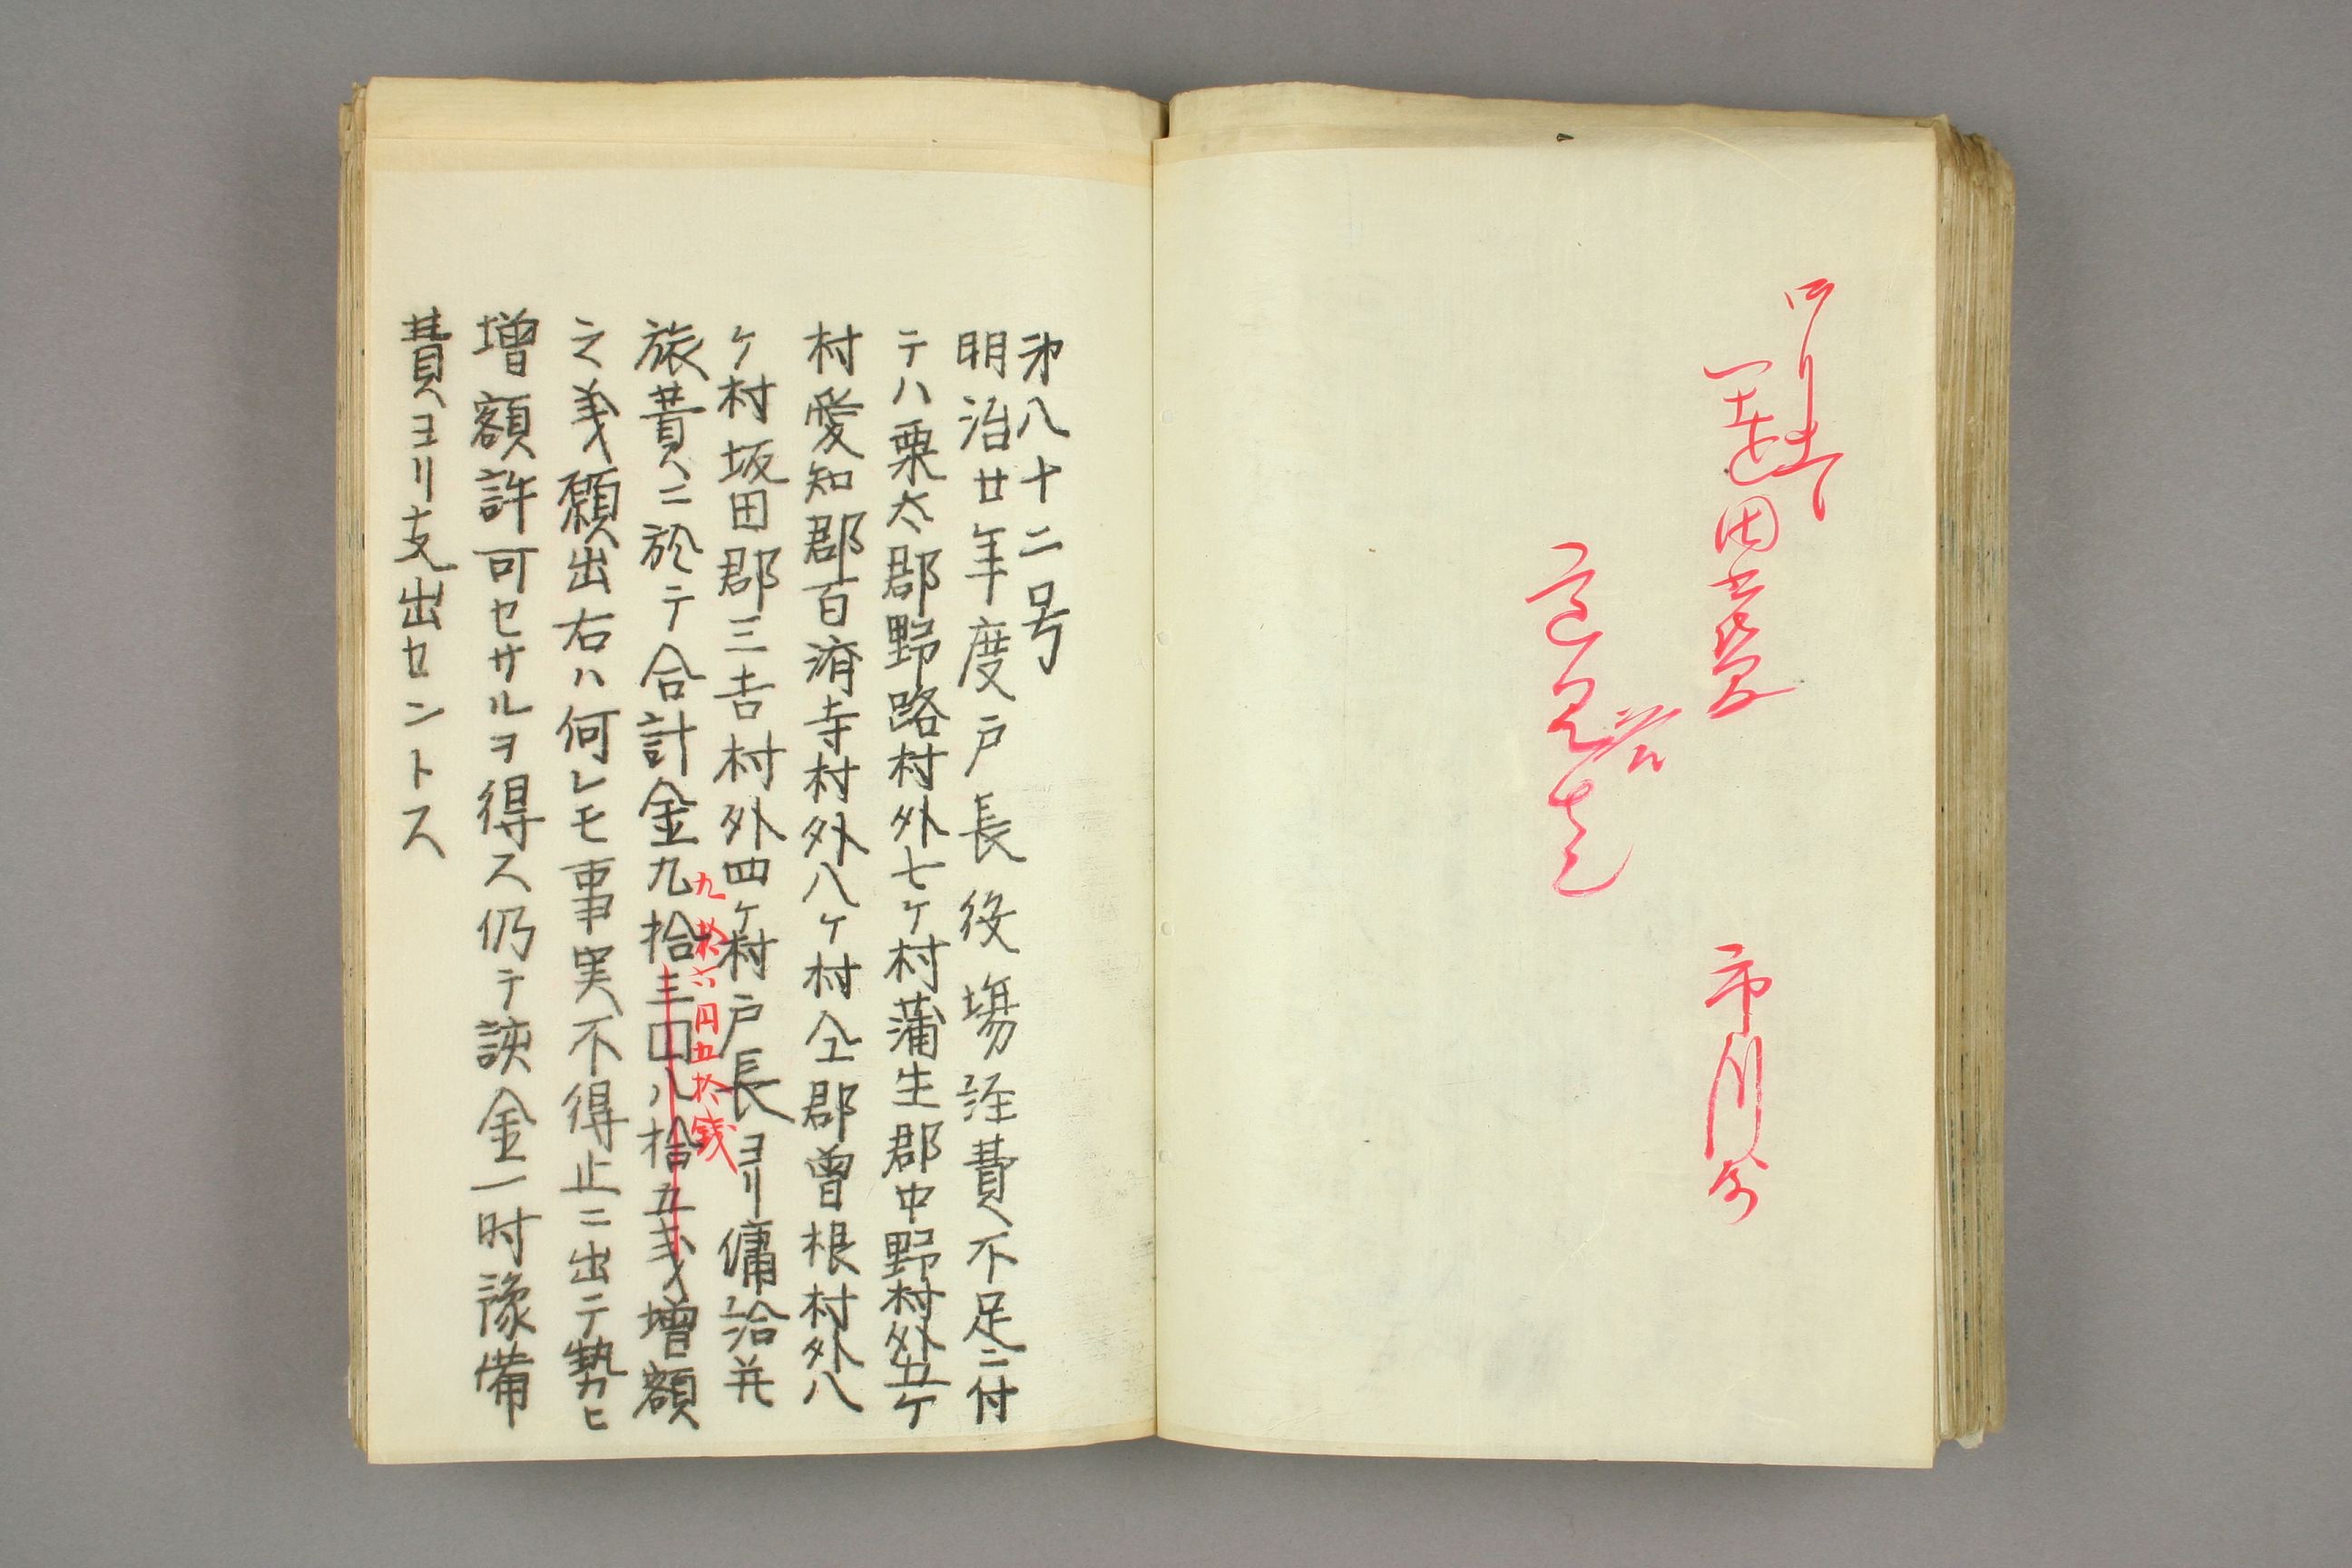 市川
第八十二号
明治廿年度戸長役場経費不足ニ付
テハ栗太郡野路村外七ケ村蒲生郡中野村外五ケ
村愛知郡百済寺村外八ケ村仝郡曽根村外八
ケ村坂田郡三吉村外四ケ村戸長ヨリ傭給并
九拾六円五拾銭
旅費ニ於テ合計金九拾三円八拾五銭増額
之義願出右ハ何レモ事実不得止ニ出テ勢ヒ
増額許可セサルヲ得ス仍テ該金一时豫備
費ヨリ支出セントス